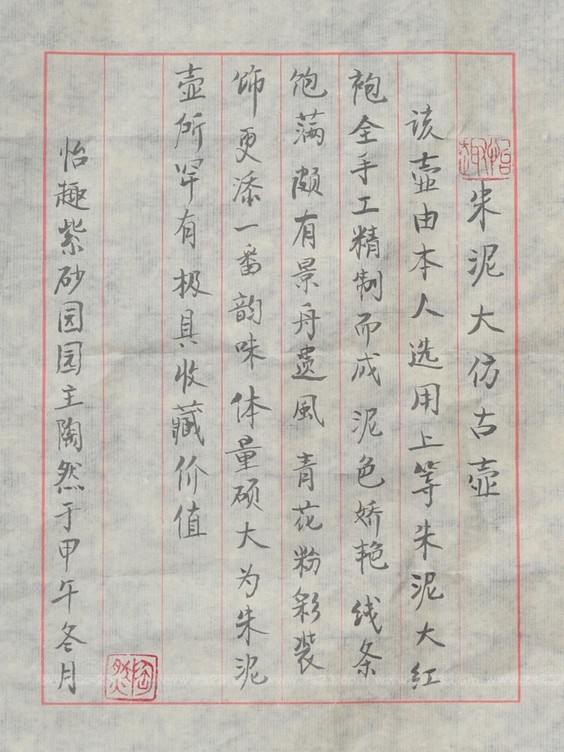 怡趣
朱泥大仿古壶
该壶由本人选用上等朱泥大红
袍全手工精制而成 泥色娇艳 线条
饱满 颇有景舟遗風 青花粉彩装
饰更添一番韵味 体量硕大为朱泥
壶所罕有 极具收藏价值
怡趣紫砂园园主陶然于甲午冬月
陶然